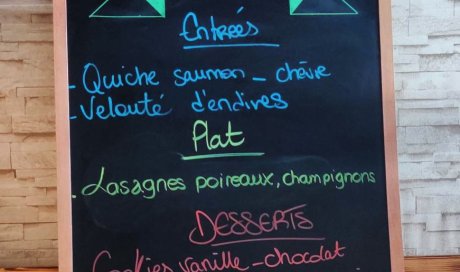 Entrées
- Quiche saumon - chèvre
- Velouté d'endives
Plat
. Lasagnes poireaux, champignons
DESSERTS
Cookies vanille - chocolat